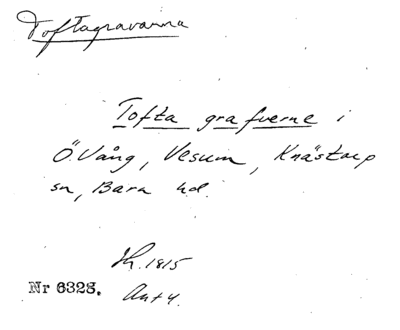 Toftagravarna
Tofta grafverne i
Ö. Vång, Vesum, Knästorp
sn, Bara hd.
1815
Nr 6323. Ant 4.